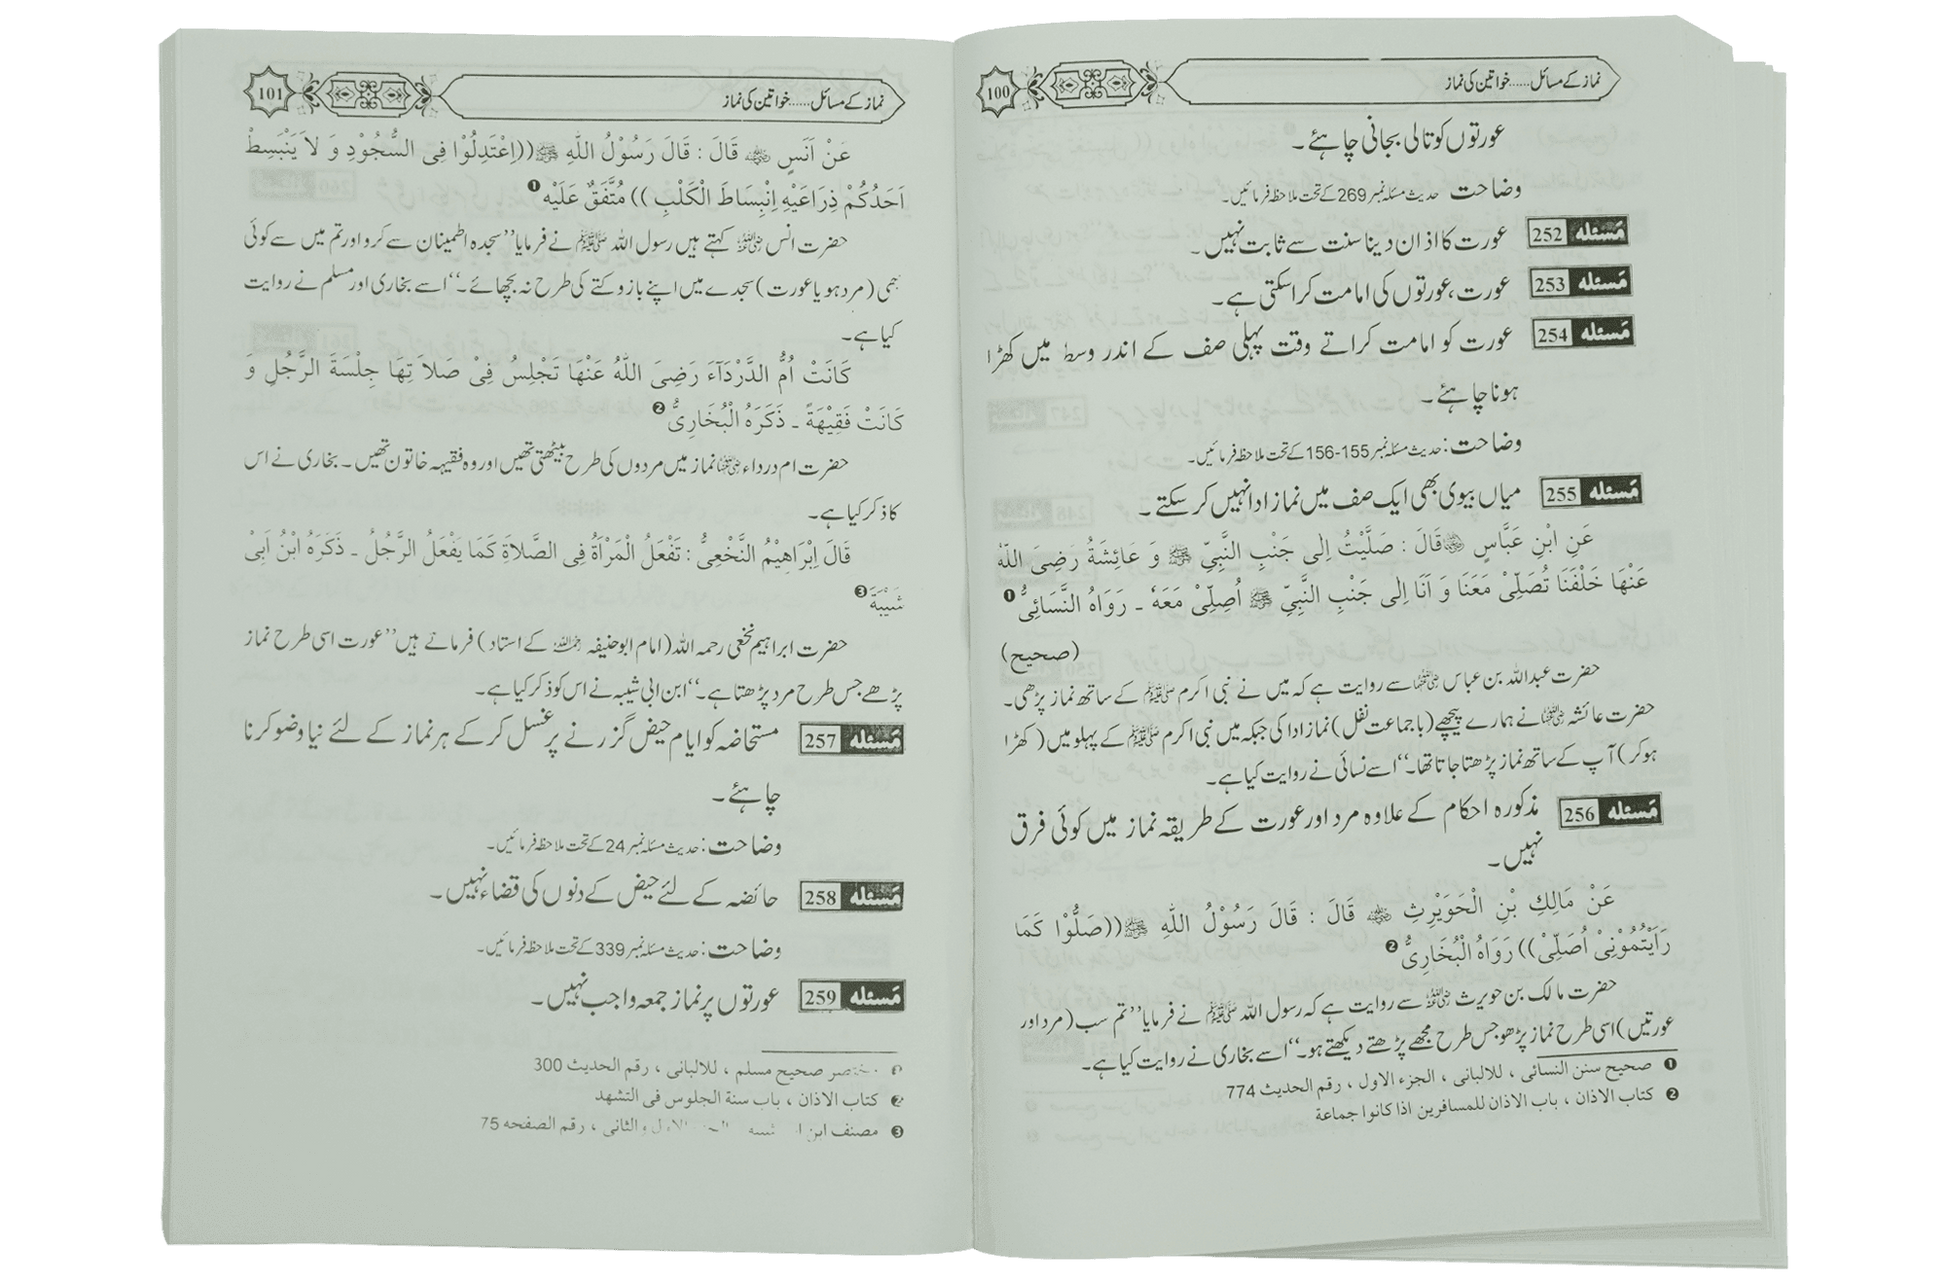 نماز کے مسائل......خواتین کی نماز
100
عورتوں کو تالی بجانی چاہئے۔
وضاحت حدیث مسئلہ نمبر 269 کے تحت ملاحظہ فرمائیں۔
مَسئله 252 عورت کا اذان دینا سنت سے ثابت نہیں۔
مَسئله 253 عورت،عورتوں کی امامت کراسکتی ہے۔
مَسئله 254 عورت کو امامت کراتے وقت پہلی صف کے اندر وسط میں کھڑا
ہونا چاہئے۔
وضاحت: حدیث مسئلہ نمبر 155-156 کے تحت ملاحظہ فرمائیں۔
مَسئله 255 میاں بیوی بھی ایک صف میں نماز ادا نہیں کر سکتے۔
عَنِ ابْنِ عَبَّاسٍ ؓ قَالَ : صَلَّيْتُ اِلٰى جَنْبِ النَّبِىِّ ﷺ وَ عَائِشَةُ رَضِىَ اللّٰهُ
عَنْهَا خَلْفَنَا تُصَلِّىْ مَعَنَا وَ اَنَا اِلٰى جَنْبِ النَّبِىِّ ﷺ اُصَلِّىْ مَعَهٗ ـ رَوَاهُ النَّسَائِىُّ ❶
(صحيح)
حضرت عبداللہ بن عباس ؓ سے روایت ہے کہ میں نے نبی اکرم ﷺ کے ساتھ نماز پڑھی۔
حضرت عائشہ ؓ نے ہمارے پیچھے (باجماعت نفل) نماز ادا کی جبکہ میں نبی اکرم ﷺ کے پہلو میں (کھڑا
ہوکر) آپ کے ساتھ نماز پڑھتا جاتا تھا۔‘‘ اسے نسائی نے روایت کیا ہے۔
مَسئله 256 مذکورہ احکام کے علاوہ مرد اور عورت کے طریقہ نماز میں کوئی فرق
نہیں۔
عَنْ مَالِكِ بْنِ الْحَوَيْرِثِ ؓ قَالَ : قَالَ رَسُوْلُ اللّٰهِ ﷺ ((صَلُّوْا كَمَا
رَاَيْتُمُوْنِىْ اُصَلِّىْ)) رَوَاهُ الْبُخَارِىُّ ❷
حضرت مالک بن حویرث ؓ سے روایت ہے کہ رسول اللہ ﷺ نے فرمایا ’’تم سب (مرد اور
عورتیں) اسی طرح نماز پڑھو جس طرح مجھے پڑھتے دیکھتے ہو۔‘‘ اسے بخاری نے روایت کیا ہے۔
❶ صحيح سنن النسائى ، للالبانى ، الجزء الاول ، رقم الحديث 774
❷ كتاب الاذان ، باب الاذان للمسافرين اذا كانوا جماعة
نماز کے مسائل......خواتین کی نماز
101
عَنْ اَنَسٍ ؓ قَالَ : قَالَ رَسُوْلُ اللّٰهِ ﷺ ((اِعْتَدِلُوْا فِى السُّجُوْدِ وَ لاَ يَنْبَسِطْ
اَحَدُكُمْ ذِرَاعَيْهِ اِنْبِسَاطَ الْكَلْبِ )) مُتَّفَقٌ عَلَيْهِ ❶
حضرت انس ؓ کہتے ہیں رسول اللہ ﷺ نے فرمایا ’’سجدہ اطمینان سے کرو اور تم میں سے کوئی
بھی (مرد ہو یا عورت) سجدے میں اپنے بازو کتے کی طرح نہ بچھائے۔‘‘ اسے بخاری اور مسلم نے روایت
کیا ہے۔
كَانَتْ اُمُّ الدَّرْدَآءَ رَضِىَ اللّٰهُ عَنْهَا تَجْلِسُ فِىْ صَلاَ تِهَا جِلْسَةَ الرَّجُلِ وَ
كَانَتْ فَقِيْهَةً ـ ذَكَرَهُ الْبُخَارِىُّ ❷
حضرت ام درداء ؓ نماز میں مردوں کی طرح بیٹھتی تھیں اور وہ فقیہہ خاتون تھیں۔ بخاری نے اس
کا ذکر کیا ہے۔
قَالَ اِبْرَاهِيْمُ النَّخْعِىُّ : تَفْعَلُ الْمَرْاَةُ فِى الصَّلاَةِ كَمَا يَفْعَلُ الرَّجُلُ ـ ذَكَرَهُ ابْنُ اَبِىْ
شَيْبَةَ ❸
حضرت ابراہیم نخعی رحمہ اللہ (امام ابوحنیفہ ؒ کے استاد) فرماتے ہیں ’’عورت اسی طرح نماز
پڑھے جس طرح مرد پڑھتا ہے۔‘‘ ابن ابی شیبہ نے اس کو ذکر کیا ہے۔
مَسئله 257 مستحاضہ کو ایام حیض گزرنے پر غسل کر کے ہر نماز کے لئے نیا وضو کرنا
چاہئے۔
وضاحت: حدیث مسئلہ نمبر 24 کے تحت ملاحظہ فرمائیں۔
مَسئله 258 حائضہ کے لئے حیض کے دنوں کی قضاء نہیں۔
وضاحت: حدیث مسئلہ نمبر 339 کے تحت ملاحظہ فرمائیں۔
مَسئله 259 عورتوں پر نماز جمعہ واجب نہیں۔
❶ مختصر صحيح مسلم ، للالبانى ، رقم الحديث 300
❷ كتاب الاذان ، باب سنة الجلوس فى التشهد
❸ مصنف ابن ابى شيبه ، الجزء الاول والثانى ، رقم الصفحه 75